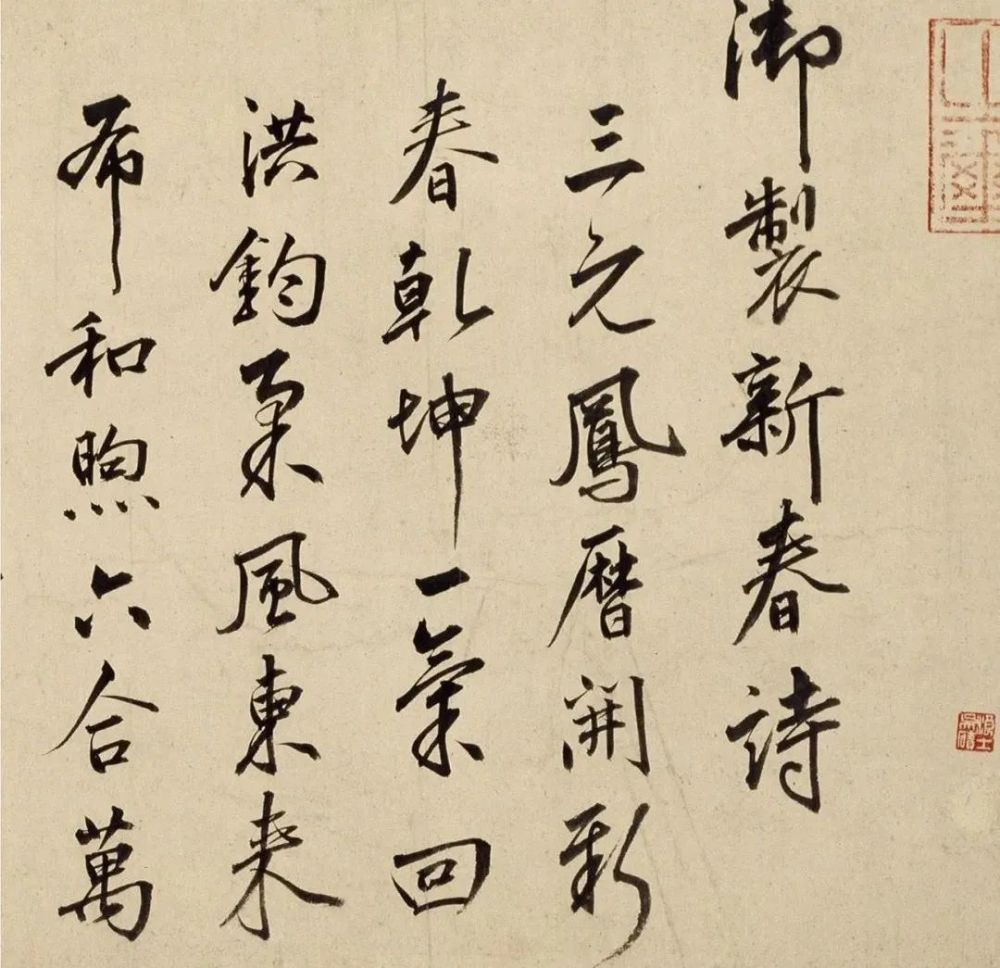 御製新春詩
三元鳳曆開新
春乾坤一氣回
洪鈞粟風東来
布和煦六合萬